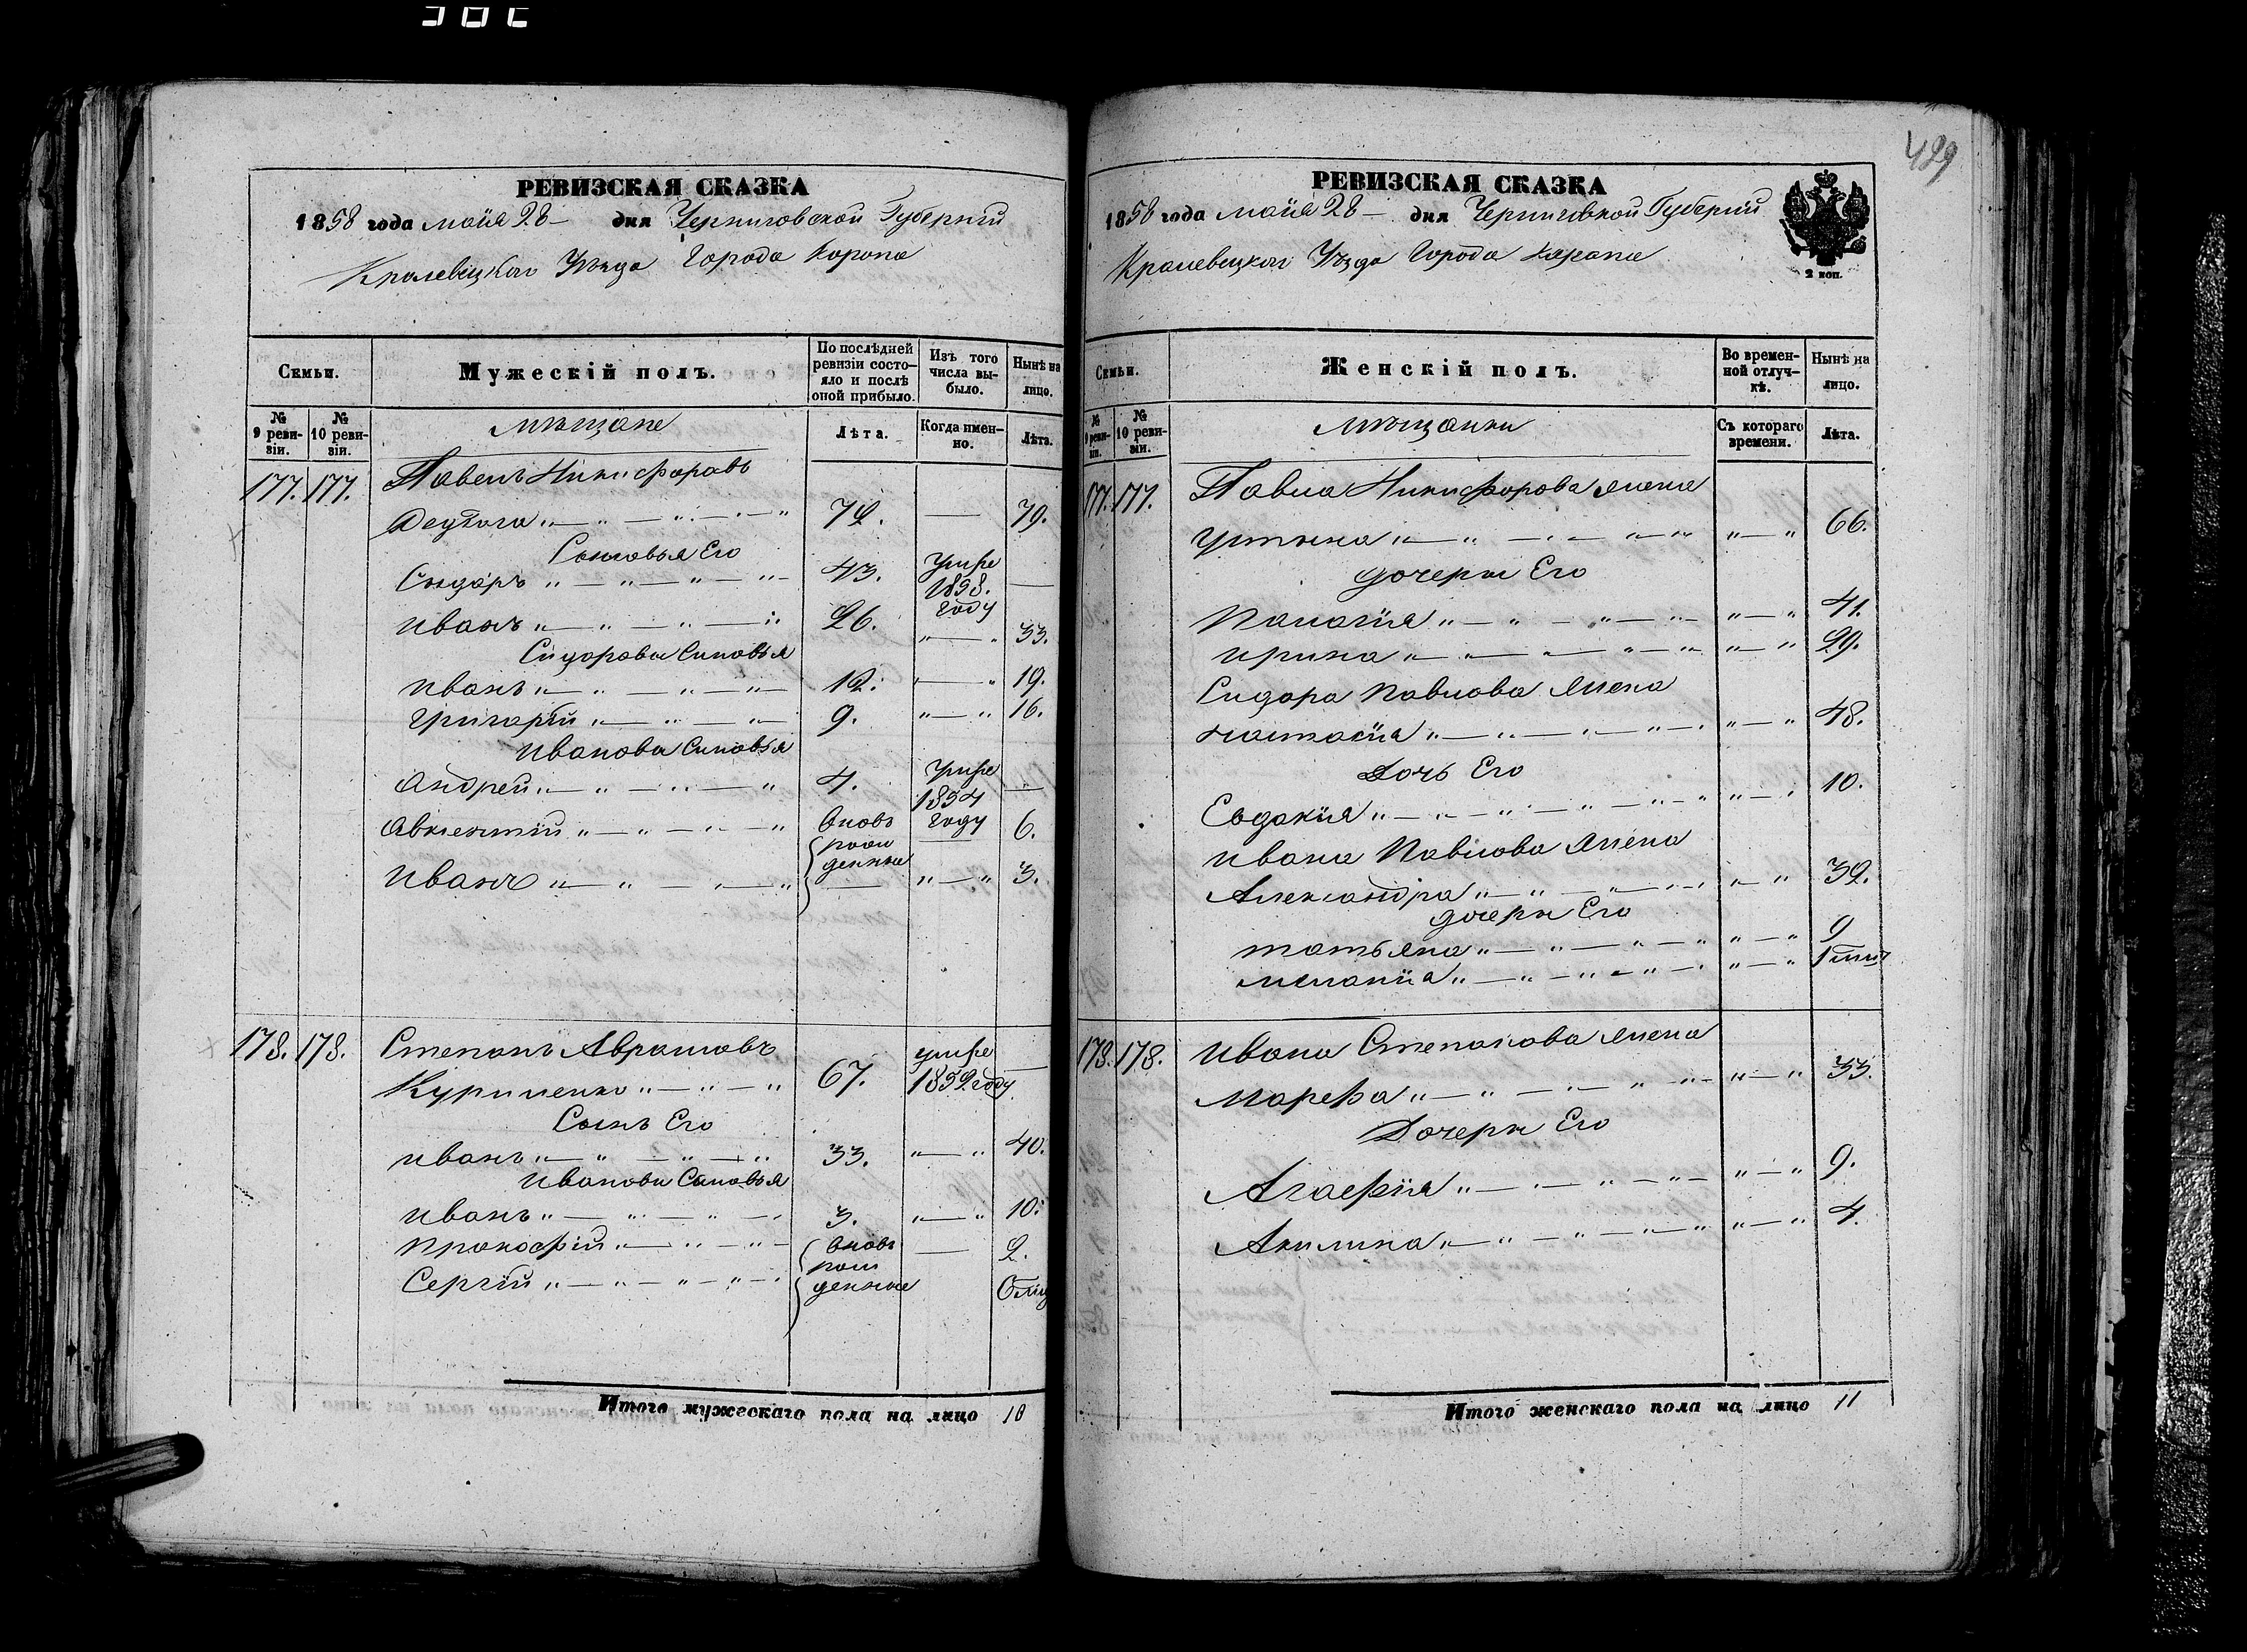 489
РЕВИЗСКАЯ СКАЗКА
1858 года майя 28 дня Черниговской Губерніи
Кролевецкого Уезда Города Коропа
Семьи.
Мужескій полъ.
По послѣдней ревизіи состо-
яло и послѣ оной прибыло.
Изъ того числа вы-
было.
Нынѣ на лицо.
№ 9 реви-
зіи.
№ 10 реви-
зіи.
мещане
Лѣта.
Когда имен-
но.
Лѣта.
177. 177. Павелъ Никифоровъ
72. — 79.
Сыновья Его
Сидоръ 43. Умре 1858. году —
Иванъ 26. 33.
Сидоровы Сыновья
Иванъ 12. 19.
Григорій 9. 16.
Ивановы Сыновья
Андрей 4. Умре 1854 году —
Авксентій вновь рожденные — 6.
Иванъ — 3.
178. 178. Степанъ Аврамовъ
Куриленко 67. умре 1852 году —
Сынъ Его
Иванъ 33. 40.
Ивановы Сыновья
Иванъ 3. 10.
Прокофій вновь рожденные — 2.
Сергій 6 мѣ
Итого мужескаго пола на лицо 10
РЕВИЗСКАЯ СКАЗКА
1858 года майя 28 — дня Черниговской Губерніи
Кралевецкого Уезда Города Коропа
2 коп.
Семьи.
Женскій полъ.
Во времен-
ной отлуч-
кѣ.
Нынѣ на лицо.
№ 9 реви-
зіи.
№ 10 реви-
зіи.
мещанки
Съ котораго времени.
Лѣта.
177. 177. Павла Никифорова жена
Устина 66.
дочери Его
Палагія 41.
Ирина 29.
Сидора Павлова жена
Настасія 48.
Дочь Его
Евдокія 10.
Ивана Павлова жена
Александра 32.
дочери Его
татьяна 9
меланія
178. 178. Ивана Степанова жена
Марфа 33.
Дочери Его
Агафія 9.
Акилина 4.
Итого женскаго пола на лицо 11